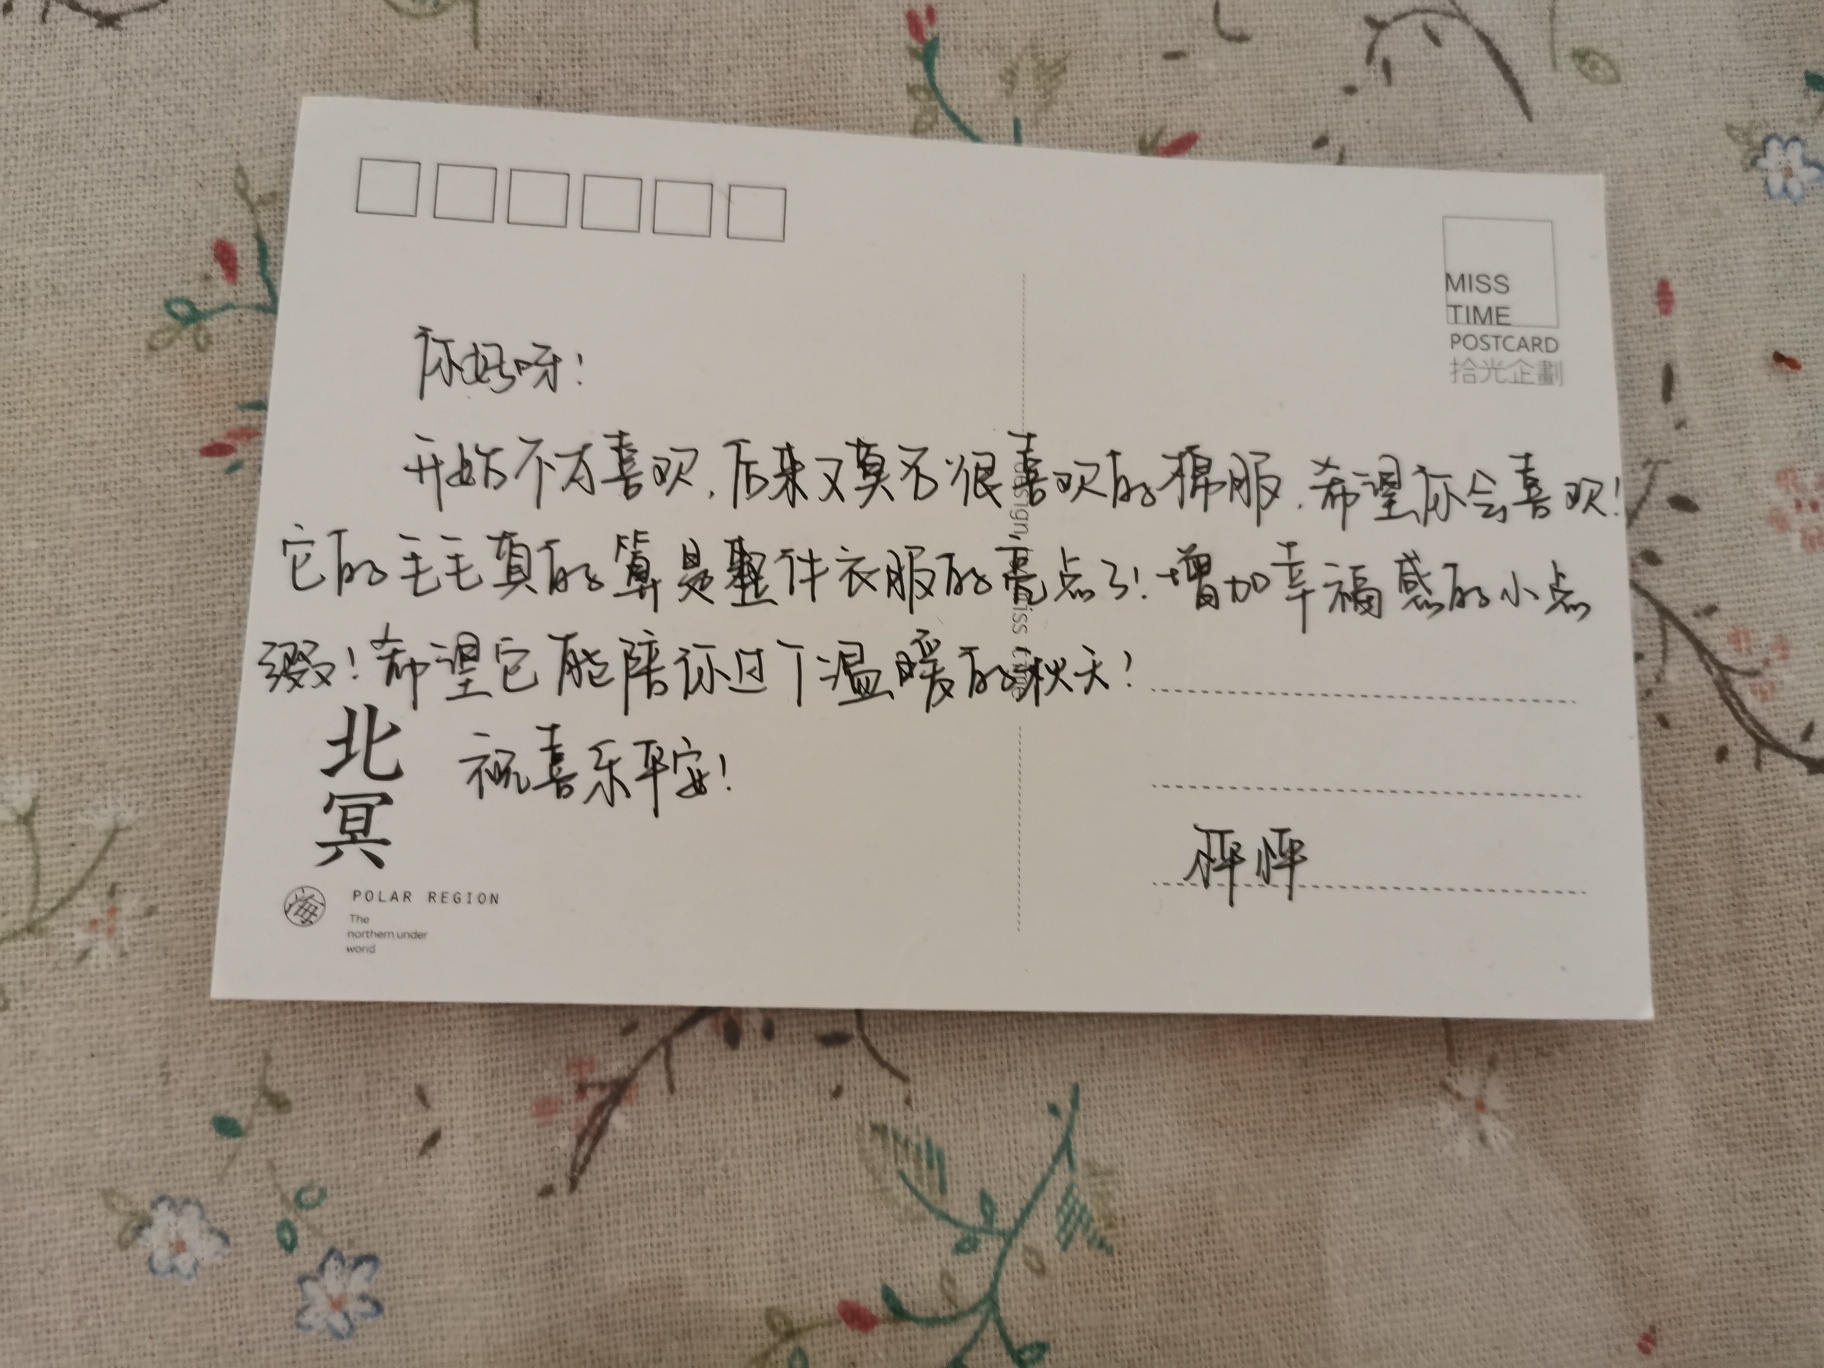 MISS
TIME
POSTCARD
拾光企劃
你好呀！
开始不太喜欢，后来又莫名很喜欢的棉服，希望你会喜欢！
它的毛毛真的算是整件衣服的亮点了！增加幸福感的小点
缀！希望它能陪你过个温暖的秋天！
祝喜乐平安！
北冥
海
POLAR REGION
The
northern under
world
怦怦